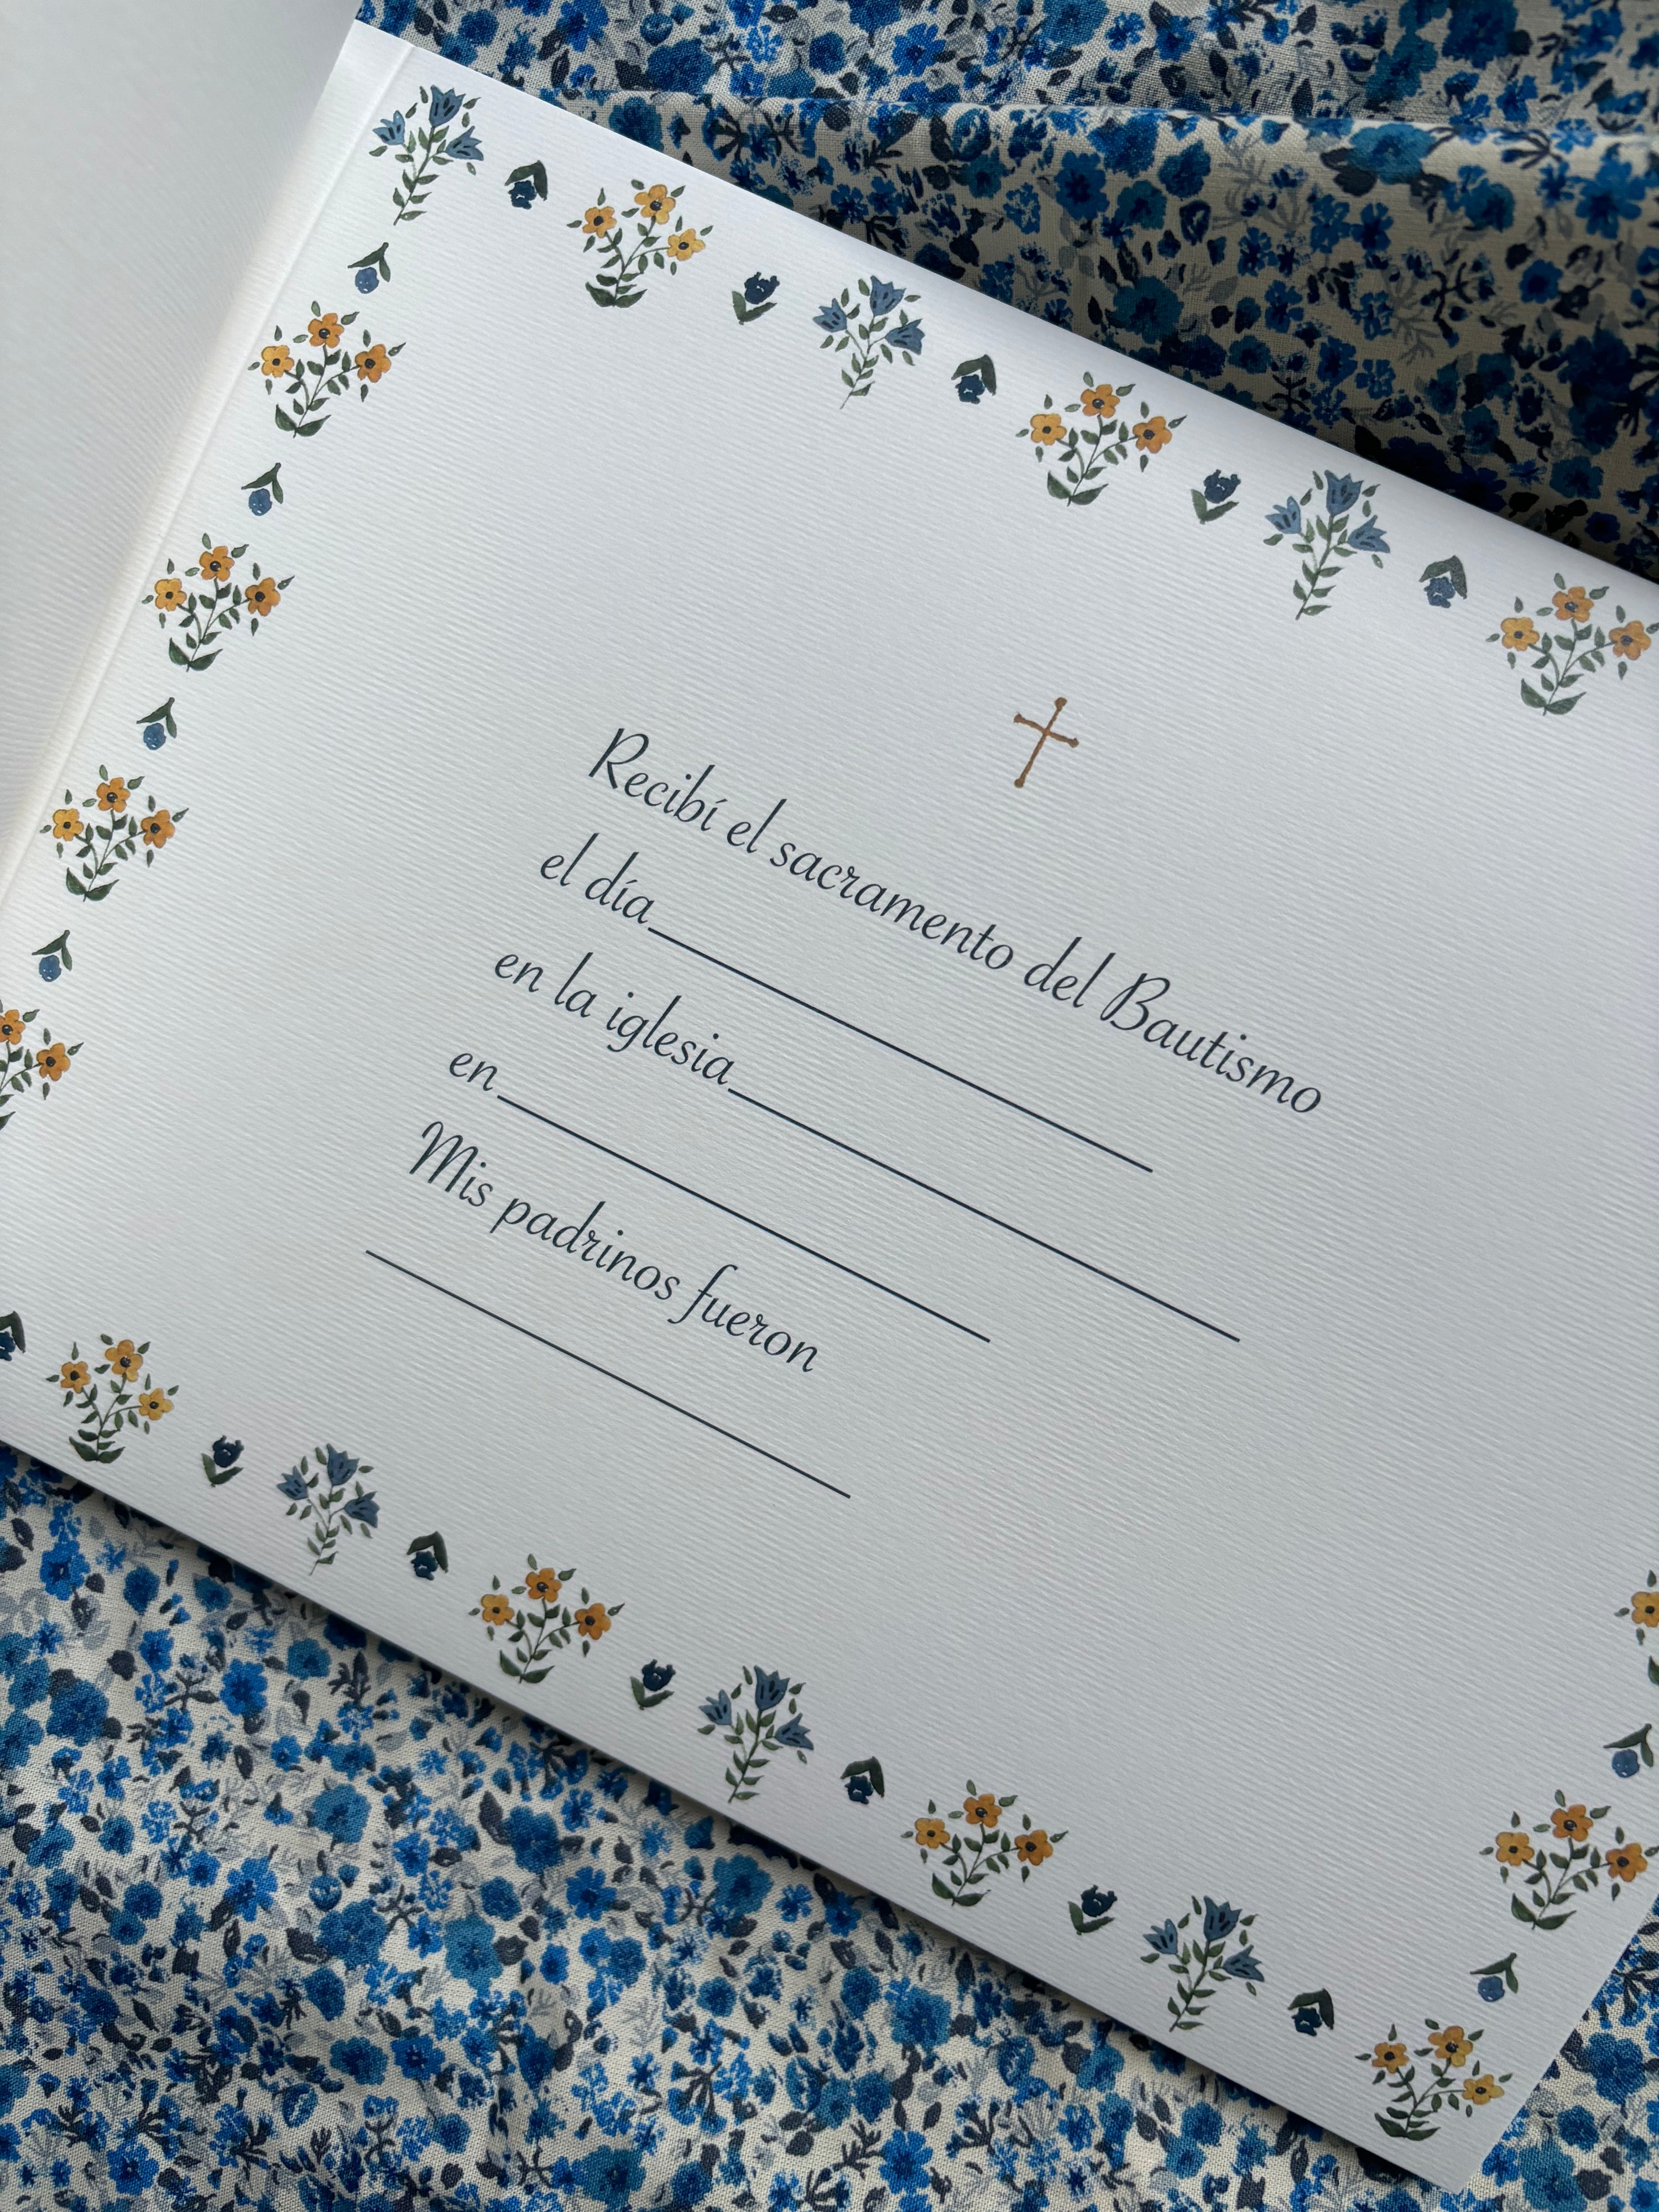 Recibí el sacramento del Bautismo
el día
en la iglesia
en
Mis padrinos fueron